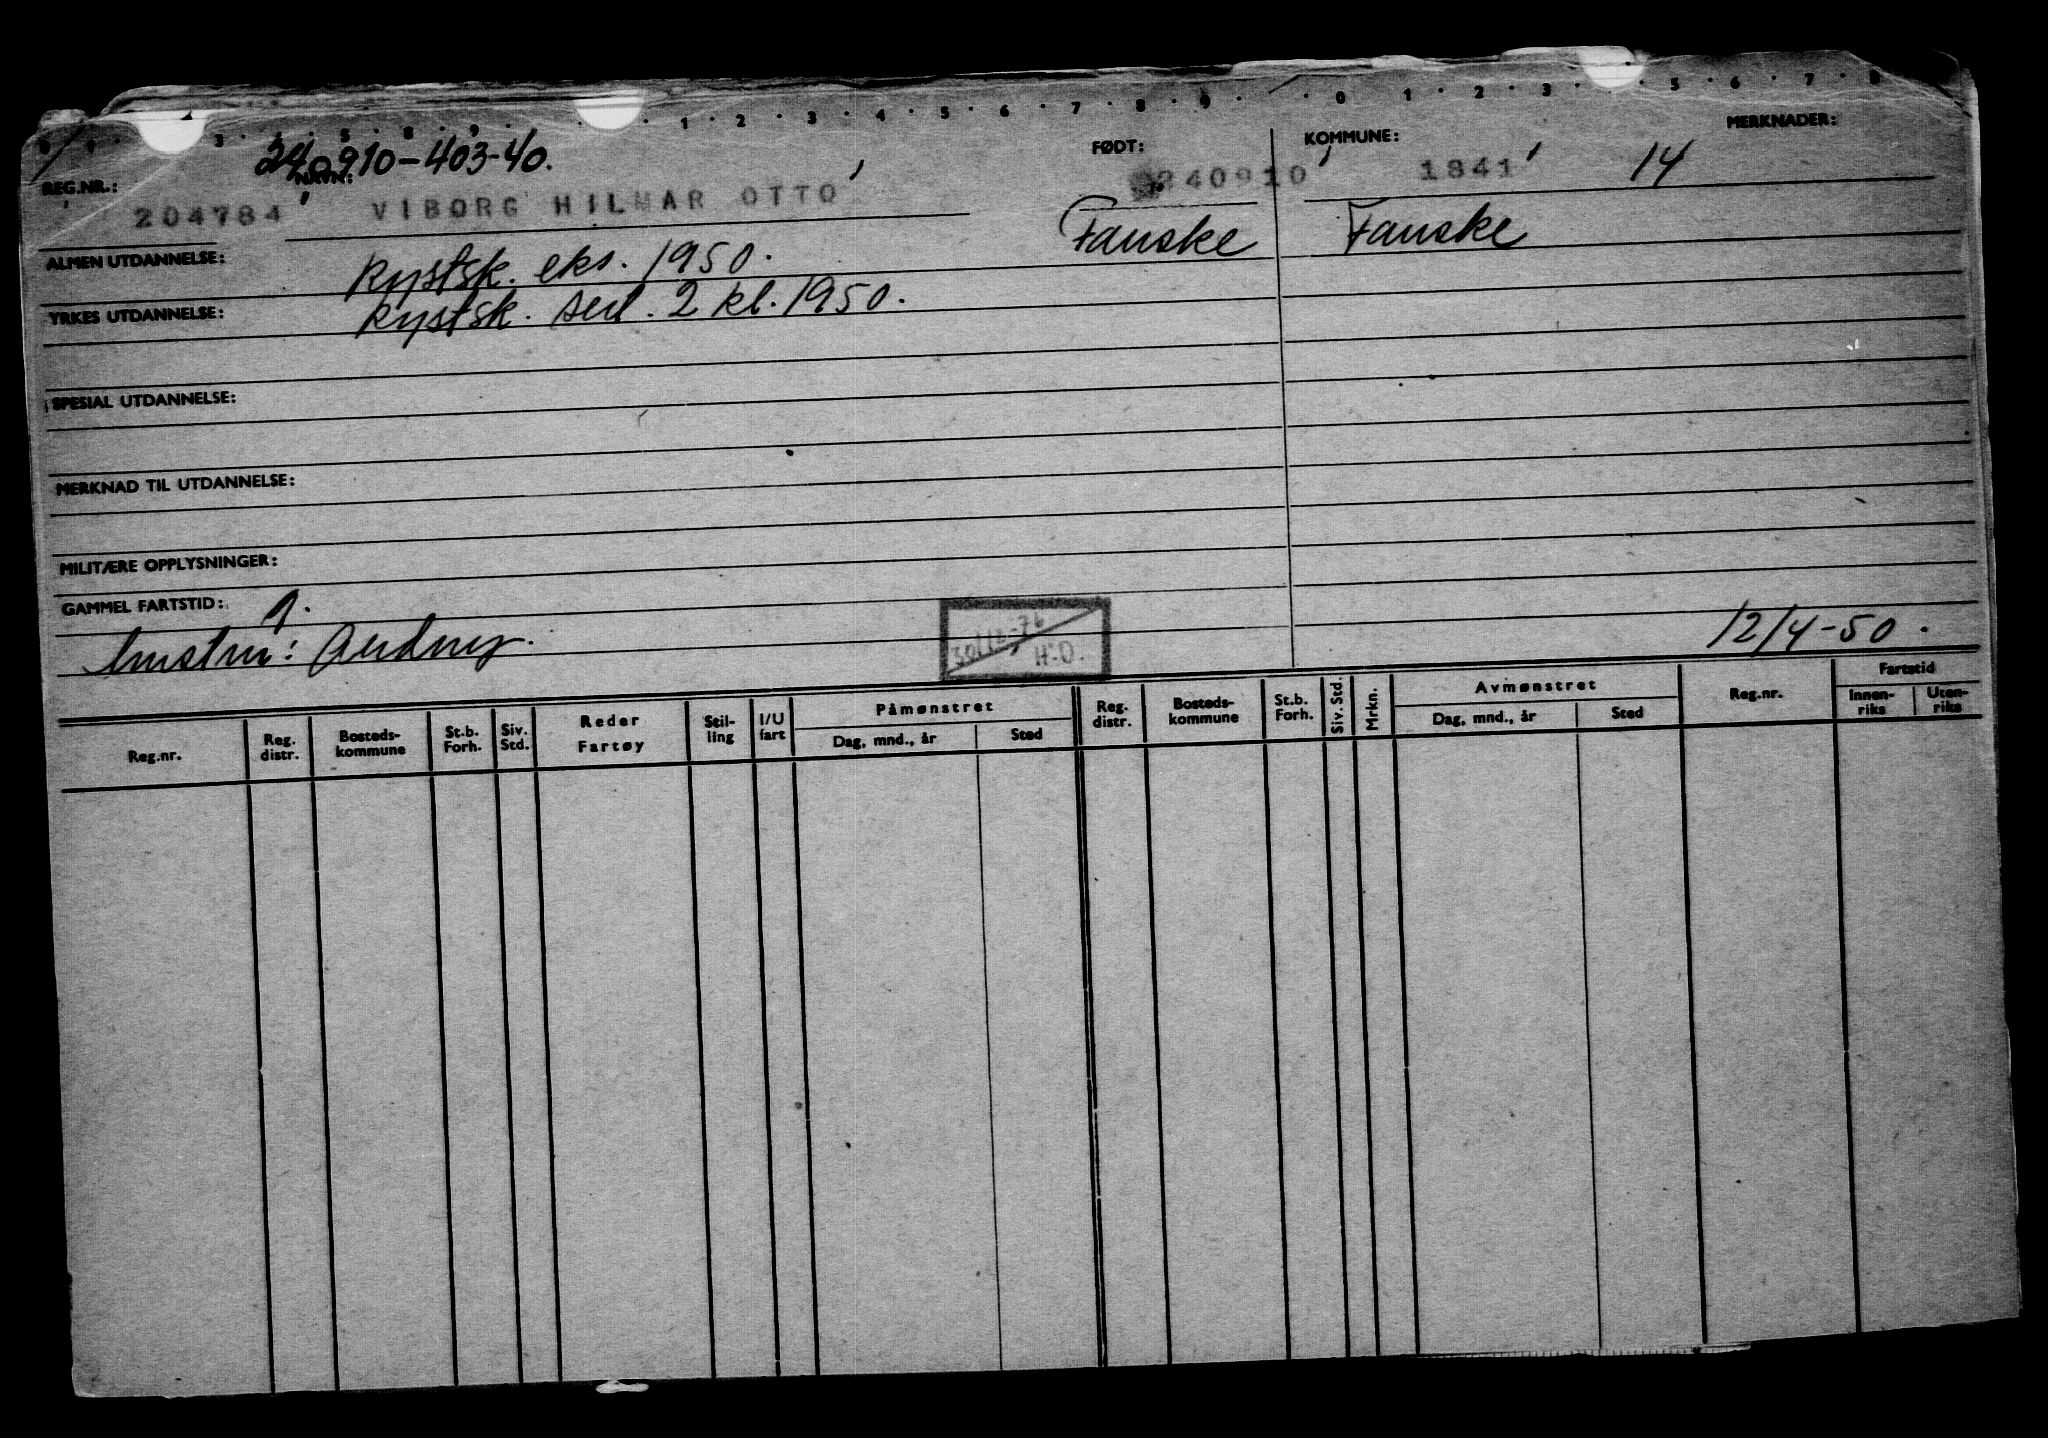 240910-403-40.
REG.NR.: NAVN: FØDT: KOMMUNE: MERKNADER:
204784 VIBORG HILMAR OTTO 240910 1841 14
Fauske Fauske
ALMEN UTDANNELSE: Kystsk. eks. 1950.
YRKES UTDANNELSE: Kystsk. sert. 2 kl. 1950.
SPESIAL UTDANNELSE:
MERKNAD TIL UTDANNELSE:
MILITÆRE OPPLYSNINGER:
GAMMEL FARTSTID:
12/4-50.
H.O.
Reg.nr. Reg. distr. Bosteds-kommune St.b. Forh. Siv. Std. Reder Fartøy Stil-ling I/U fart Påmønstret Dag, mnd., år Sted Reg. distr. Bosteds-kommune St.b. Forh. Siv. Std. Mrkn. Avmønstret Dag, mnd., år Sted Reg.nr. Fartstid Innen-riks Uten-riks